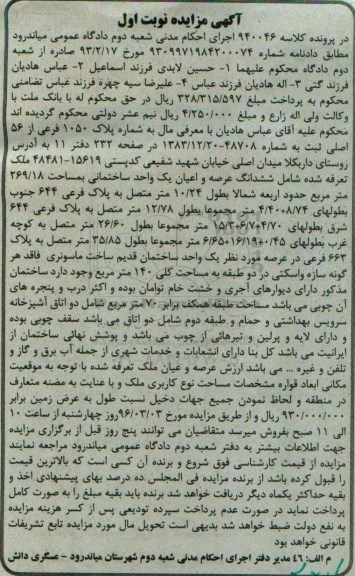 آگهی مزایده نوبت اول
در پرونده کلاسه ۹۴۰۰۴۶ اجرای احکام مدنی شعبه دوم دادگاه عمومی میاندرود
مطابق دادنامه شماره ۹۳۰۹۹۷۱۹۸۴۲۰۰۰۷۴ مورخ ۹۳/۲/۱۷ صادره از شعبه
دوم دادگاه محکوم علیهما ۱- حسین لابدی فرزند اسماعیل ۲- عباس هادیان
فرزند گتی ۳- اله هادیان فرزند عباس ۴- علیرضا سیه چهره فرزند عباس تضامنی
محکوم به پرداخت مبلغ ۳۲۸/۳۱۵/۵۹۷ ریال در حق محکوم له با بانک ملت با
وکالت ولی اله زارع و مبلغ ۴/۲۵۰/۰۰۰ ریال نیم عشر دولتی محکوم گردیده اند
محکوم علیه آقای عباس هادیان با معرفی مال به شماره پلاک ۱۰۵۰ فرعی از ۵۶
اصلی ثبت به شماره ۴۸۷۰۸-۱۳۸۳/۱۲/۲۰ در صفحه ۲۳۲ دفتر ۱۱ به آدرس
روستای داربکلا میدان اصلی خیابان شهید شفیعی کدپستی ۱۵۶۱۹-۴۸۴۸۱ ملک
تعرفه شده شامل ششدانگ عرصه و اعیان یک واحد ساختمانی بمساحت ۲۶۹/۱۸
متر مربع حدود اربعه شمالا بطول ۱۰/۲۴ متر متصل به پلاک فرعی ۶۴۴ جنوب
بطولهای ۸/۷۴+۴/۴۰ متر مجموعا بطول ۱۲/۷۸ متر متصل به پلاک فرعی ۶۴۴
شرق بطولهای ۴/۷۰+۶/۷+۱۵/۳ متر مجموعا بطول ۲۶/۶۰ متر متصل به کوچه
غرب بطولهای ۰/۴۵+۱۶/۱۹+۶/۶۵ متر مجموعا بطول ۳۵/۸۵ متر متصل به پلاک
۶۶۳ فرعی در عرصه مورد نظر یک واحد ساختمان قدیم ساخت ماسونری فاقد هر
گونه سازه واسکتی در دو طبقه به مساحت کلی ۱۴۰ متر مربع وجود دارد ساختمان
مذکور دارای دیوارهای آجری و خشت خام توامان بوده و اکثر درب و پنجره های
آن چوبی می باشد مساحت طبقه همکف برابر ۷۰ متر مربع شامل دو اتاق آشپزخانه
سرویس بهداشتی و حمام و طبقه دوم شامل دو اتاق می باشد سقف چوبی بوده
و دارای لایه و پرلین و تیرهائی از چوب می باشد و پوشش نهائی ساختمان از
ایرانیت می باشد کل بنا دارای انشعابات و خدمات شهری از جمله آب برق و گاز و
تلفن و غیره ... می باشد ارزش عرصه و عیان ملک تعرفه شده با توجه به موقعیت
مکانی ابعاد قواره مشخصات مساحت نوع کاربری ملک و با عنایت به مضنه متعارف
در منطقه و لحاظ نمودن جمیع جهات دخیل نسبت طول به عرض زمین برابر
۹۳۰/۰۰۰/۰۰۰ ریال و از طریق مزایده مورخ ۹۶/۰۳/۰۳ روز چهارشنبه از ساعت ۱۰
الی ۱۱ صبح بفروش میرسد متقاضیان می توانند پنج روز قبل از برگزاری مزایده
جهت اطلاعات بیشتر به دفتر شعبه دوم دادگاه عمومی میاندرود مراجعه نمایند
مزایده از قیمت کارشناسی فوق شروع و برنده آن کسی است که بالاترین قیمت
را قبول کرده باشد از برنده مزایده فی المجلس ده درصد بهای پیشنهادی اخذ و
بقیه حداکثر یکماه دیگر دریافت خواهد شد برنده باید بقیه مبلغ را به صورت کامل
پرداخت نماید در صورت عدم پرداخت سپرده تودیعی پس از کسر هزینه مزایده
به نفع دولت ضبط خواهد شد بدیهی است تحویل مال مورد مزایده تابع تشریفات
قانونی خواهد بود
م الف: ٤٦ مدیر دفتر اجرای احکام مدنی شعبه دوم شهرستان میاندرود - عسگری دانش